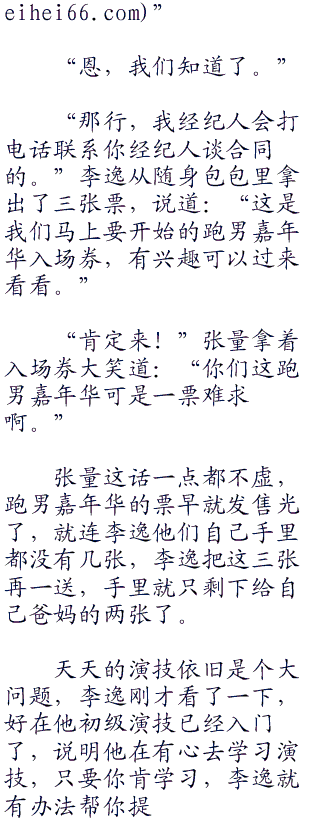 eihei66.com)”
“恩，我们知道了。”
“那行，我经纪人会打
电话联系你经纪人谈合同
的。”李逸从随身包包里拿
出了三张票，说道：“这是
我们马上要开始的跑男嘉年
华入场券，有兴趣可以过来
看看。”
“肯定来！”张量拿着
入场券大笑道：“你们这跑
男嘉年华可是一票难求
啊。”
张量这话一点都不虚，
跑男嘉年华的票早就发售光
了，就连李逸他们自己手里
都没有几张，李逸把这三张
再一送，手里就只剩下给自
己爸妈的两张了。
天天的演技依旧是个大
问题，李逸刚才看了一下，
好在他初级演技已经入门
了，说明他在有心去学习演
技，只要你肯学习，李逸就
有办法帮你提